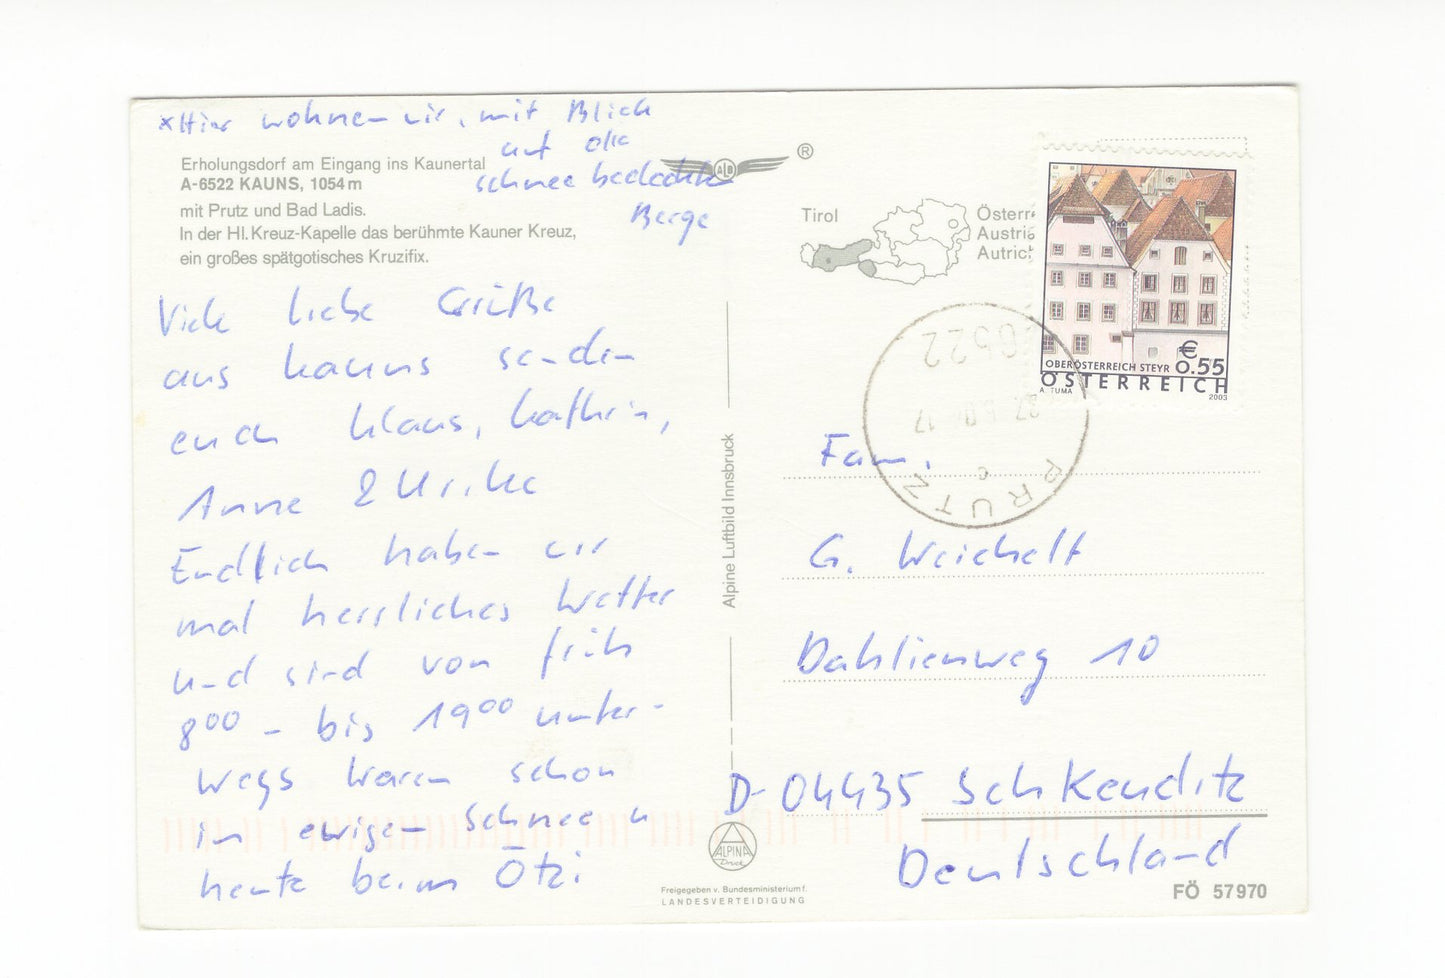 *Hier wohnen wir, mit Blick
auf die
schneebedeckten
Berge
Erholungsdorf am Eingang ins Kaunertal
A-6522 KAUNS, 1054 m
mit Prutz und Bad Ladis.
In der Hl. Kreuz-Kapelle das berühmte Kauner Kreuz,
ein großes spätgotisches Kruzifix.
Viele liebe Grüße
aus Kauns senden
euch Klaus, Kathrin,
Anne & Ulrike
Endlich haben wir
mal herrliches Wetter
und sind von früh
8⁰⁰ - bis 19⁰⁰ unter-
wegs waren schon
im ewigen Schnee u
heute beim Ötzi
Alpine Luftbild Innsbruck
ALB
®
Tirol
Österr
Austria
Autric
€
OBERÖSTERREICH STEYR 0.55
ÖSTERREICH
A. TUMA 2003
6522
PRUTZ
c
Fam.
G. Weichelt
Dahlienweg 10
D-04435 Schkeuditz
Deutschland
ALPINA
Druck
Freigegeben v. Bundesministerium f.
LANDESVERTEIDIGUNG
FÖ 57970